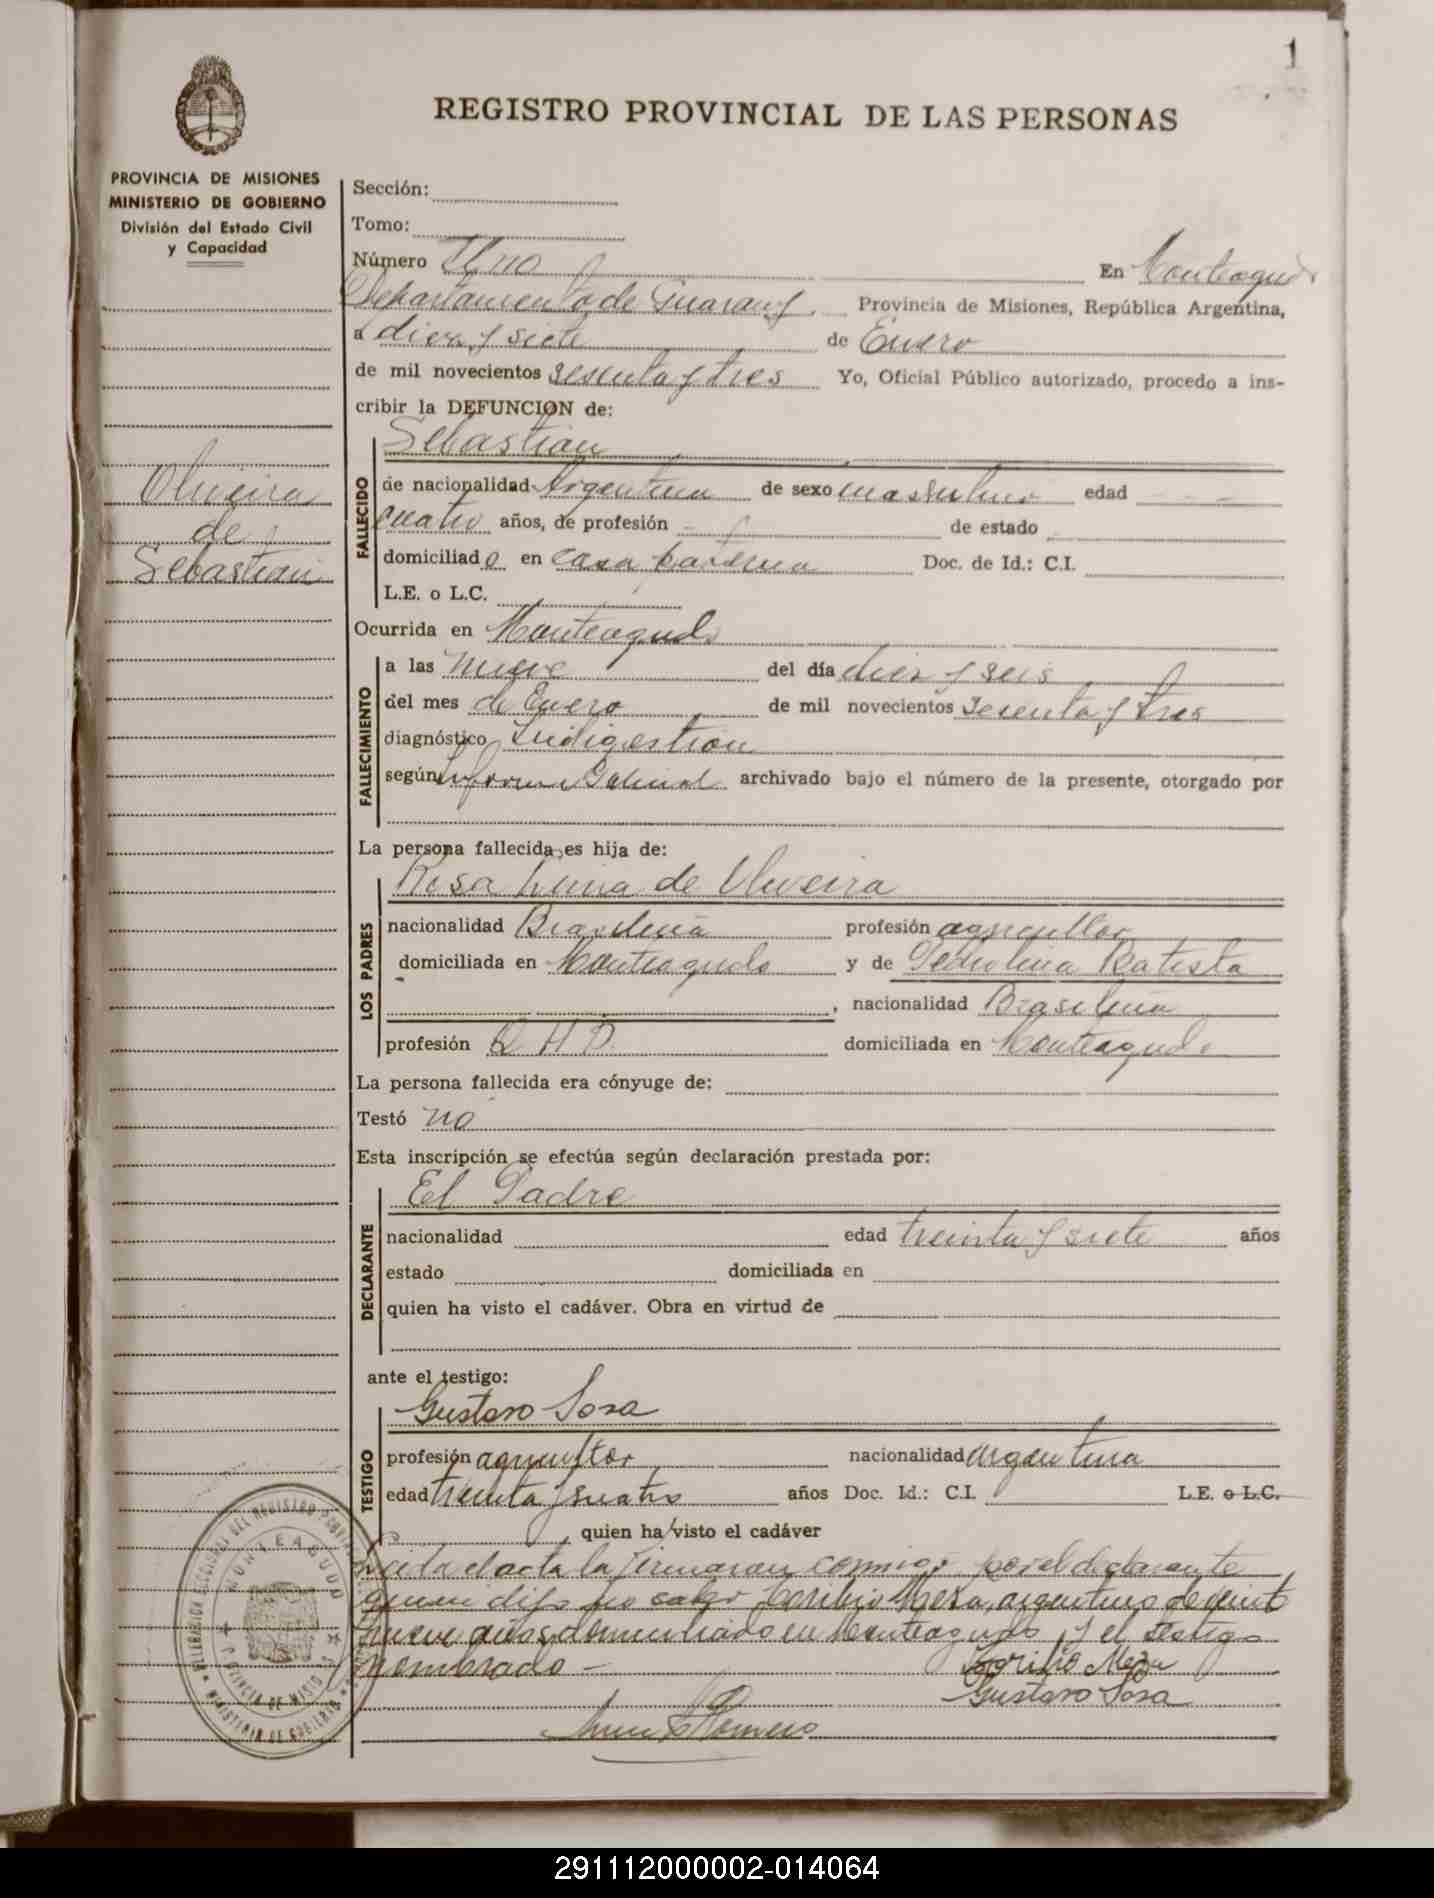 1
REGISTRO PROVINCIAL DE LAS PERSONAS
PROVINCIA DE MISIONES
MINISTERIO DE GOBIERNO
División del Estado Civil
y Capacidad
Oliveira
de
Sebastian
Sección:
Tomo:
Número Uno En Monteagudo
Departamento de Guarany Provincia de Misiones, República Argentina,
a diez y siete de Enero
de mil novecientos sesenta y tres Yo, Oficial Público autorizado, procedo a ins-
cribir la DEFUNCION de:
Sebastian
FALLECIDO
de nacionalidad Argentina de sexo masculino edad
cuatro años, de profesión de estado
domiciliado en casa paterna Doc. de Id.: C.I.
L.E. o L.C.
Ocurrida en Monteagudo
FALLECIMIENTO
a las nueve del día diez y seis
del mes de Enero de mil novecientos sesenta y tres
diagnóstico Indigestion
según Informe Policial archivado bajo el número de la presente, otorgado por
La persona fallecida es hija de:
LOS PADRES
Rosa Lima de Oliveira
nacionalidad Brasileña profesión agricultor
domiciliada en Monteagudo y de Pedrolina Batista
, nacionalidad Brasileña
profesión Q H D. domiciliada en Monteagudo
La persona fallecida era cónyuge de:
Testó no
Esta inscripción se efectúa según declaración prestada por:
DECLARANTE
El Padre
nacionalidad edad treinta y siete años
estado domiciliada en
quien ha visto el cadáver. Obra en virtud de
ante el testigo:
TESTIGO
Gustavo Sosa
profesión agricultor nacionalidad argentina
edad treinta y cuatro años Doc. Id.: C.I. L.E. o L.C.
, quien ha visto el cadáver
Leida el acta la firmaran conmigo por el declarante
quien dijo no saber Toribio Meza, argentino de veinti
nueve años domiciliado en Monteagudo y el testigo
nombrado -
Toribio Meza
Gustavo Sosa
Romero
MONTEAGUDO
291112000002-014064